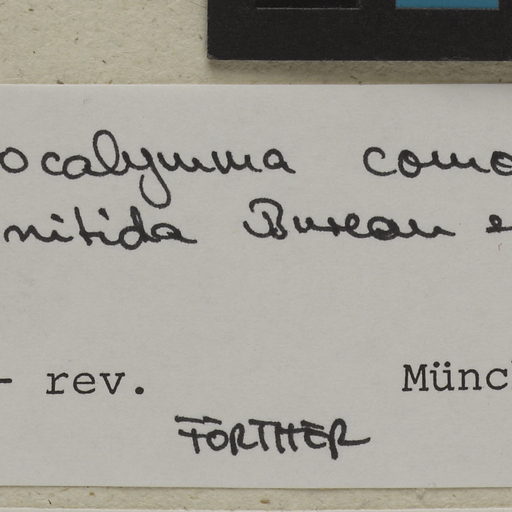 ocalymma como
nitida Bureau e
- rev. Münc
FÖRTHER